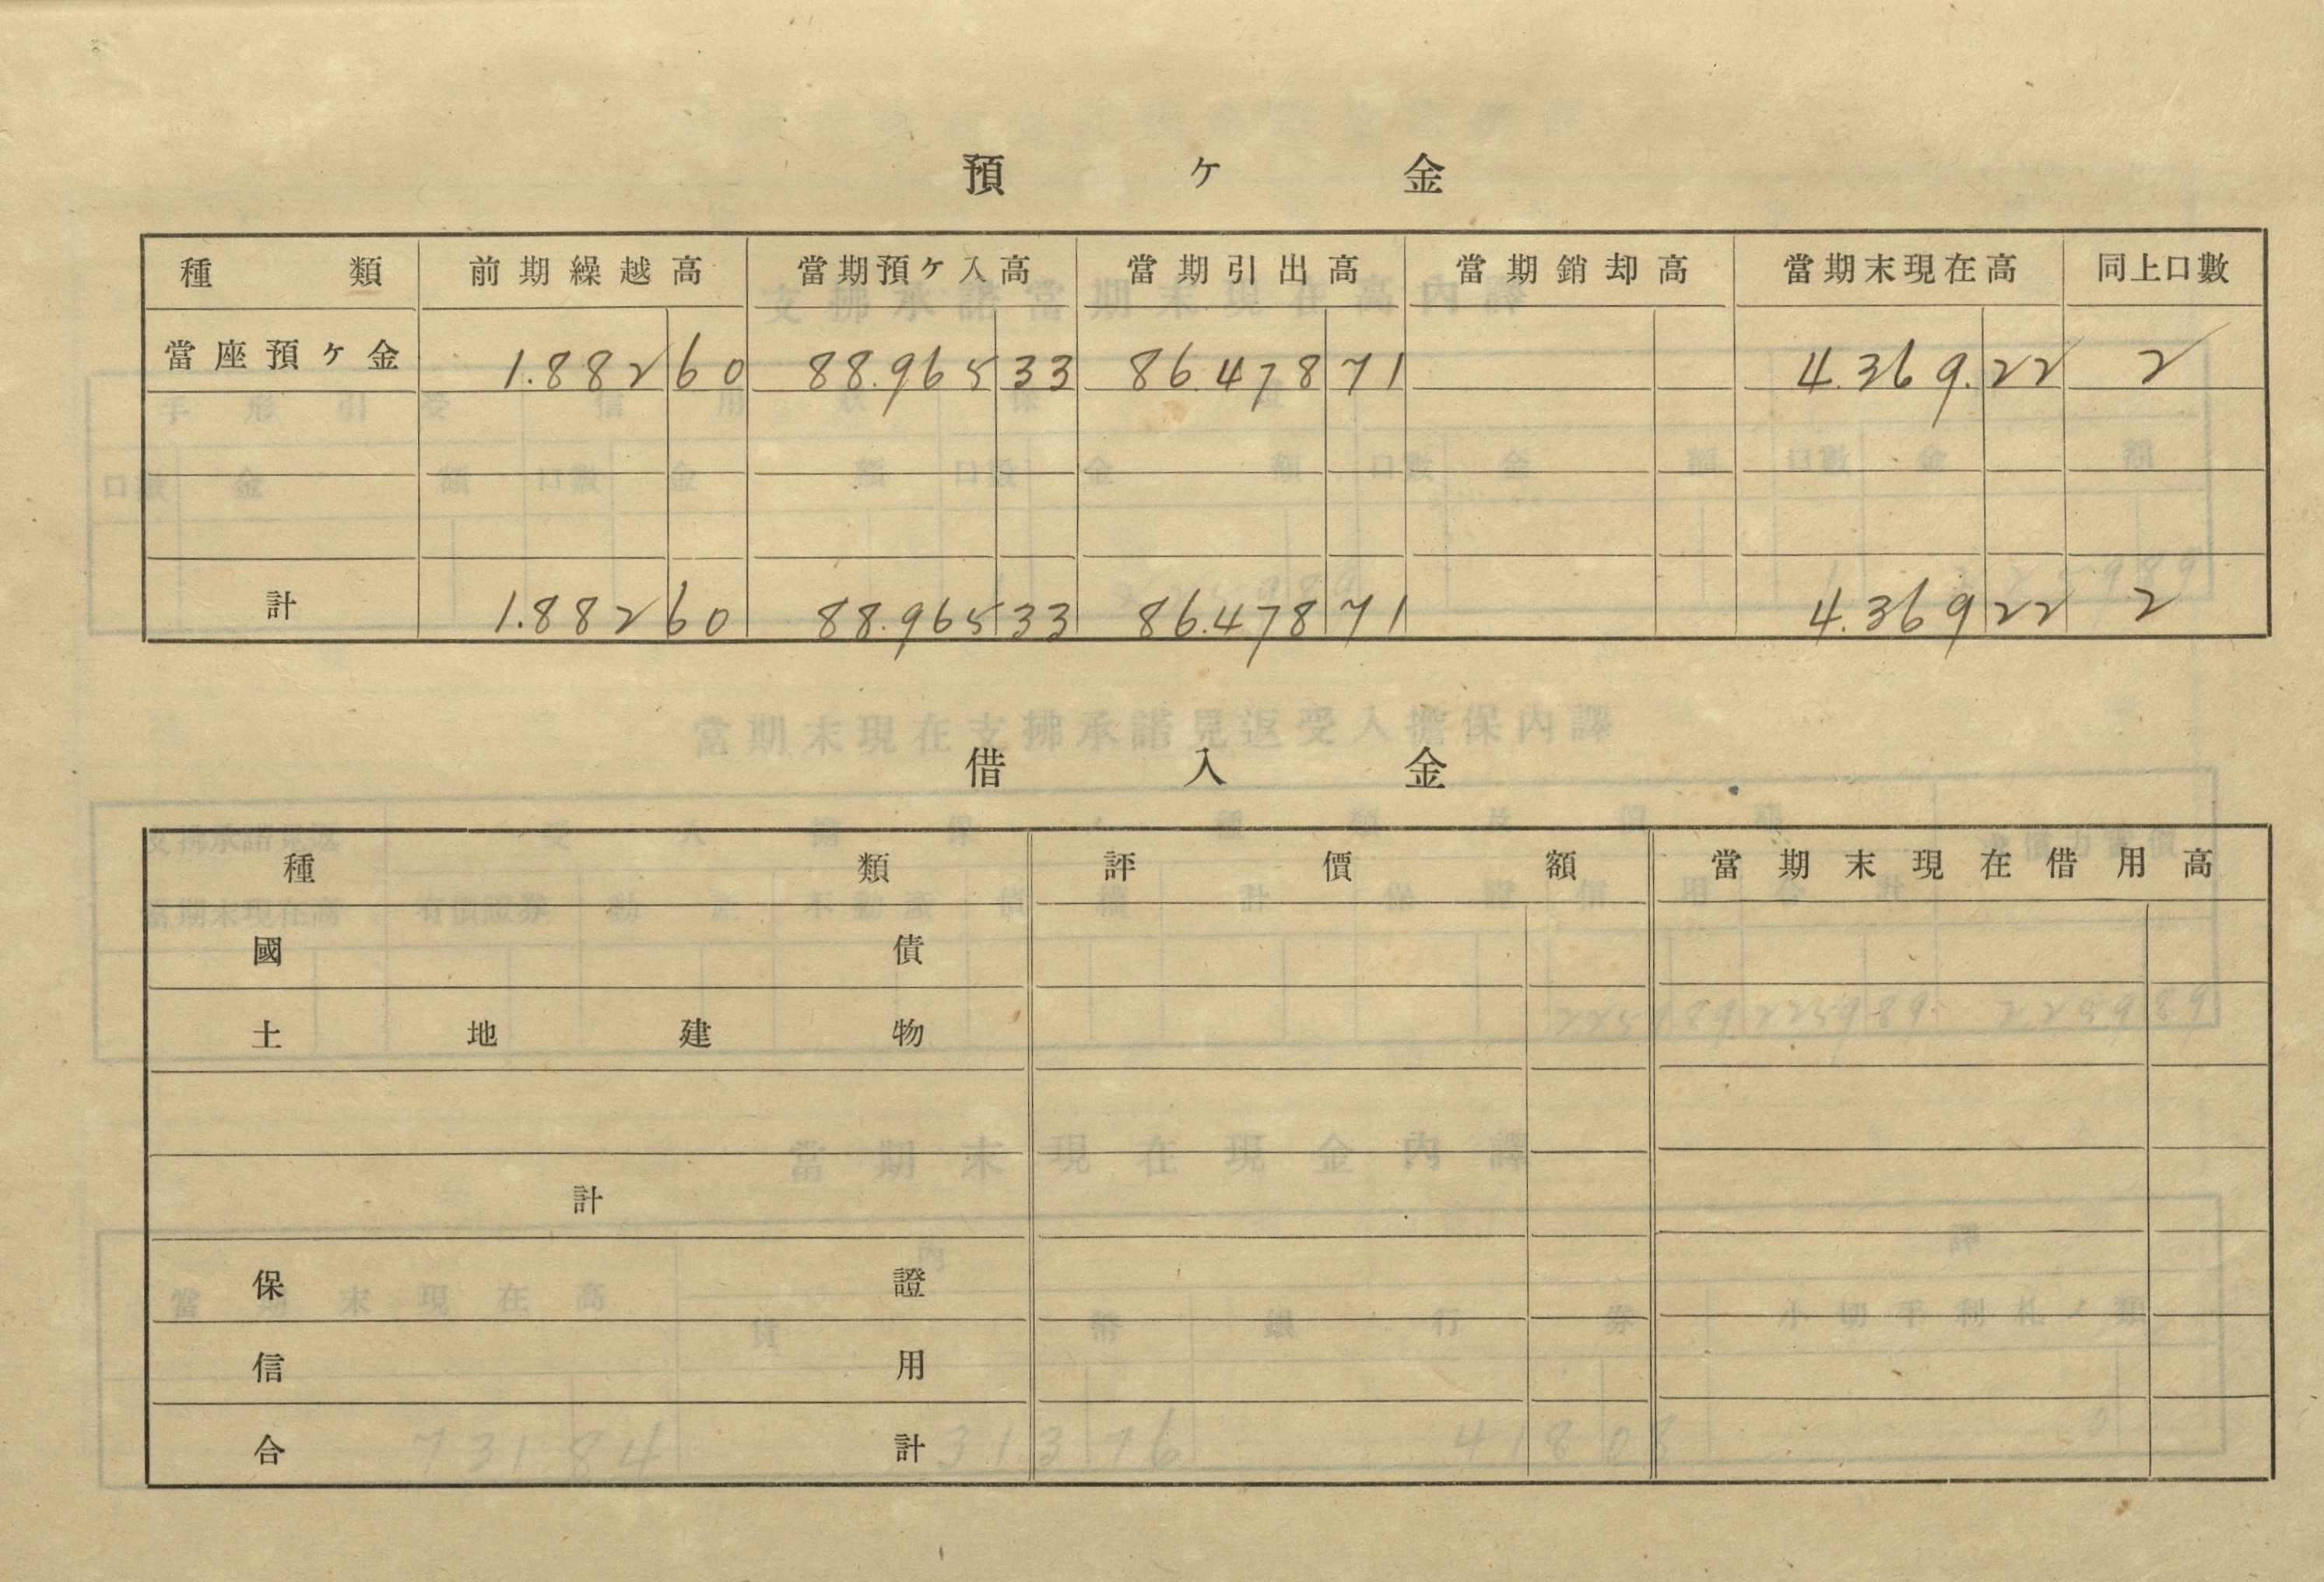 預ケ金
種類 前期繰越高 當期預ケ入高 當期引出高 當期銷却高 當期末現在高 同上口數
當座預ケ金 1.882 60 88.965 33 86.478 71 4.369. 22 2
計 1.882 60 88.965 33 86.478 71 4.369 22 2
借入金
種類 評價額 當期末現在借用高
國債
土地建物
計
保證
信用
合計